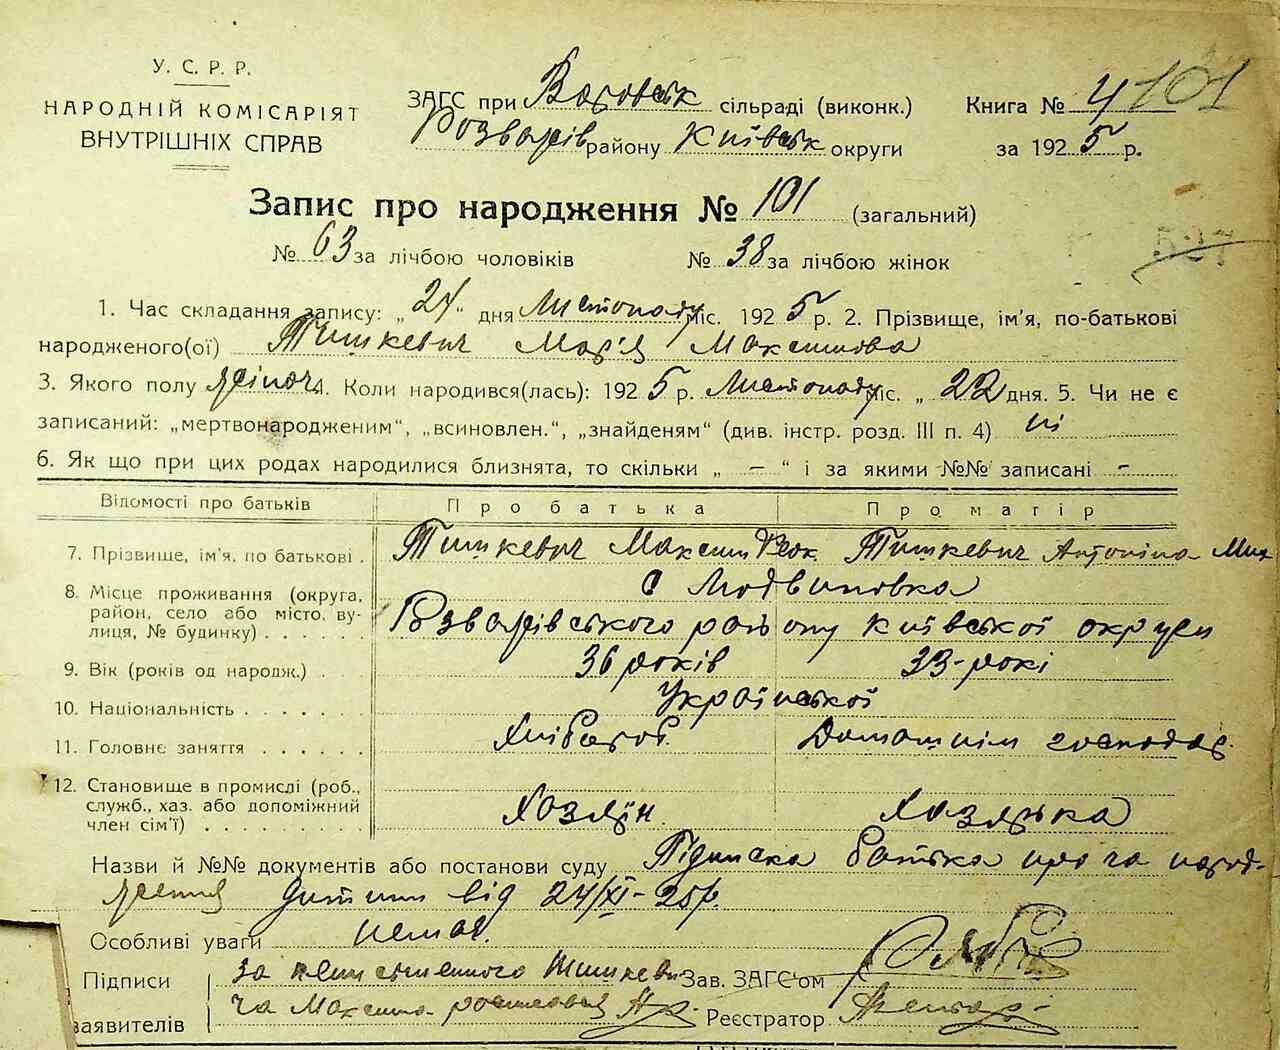 У. С. Р. Р.
НАРОДНІЙ КОМІСАРІЯТ
ВНУТРІШНІХ СПРАВ
ЗАГС при сільраді (виконк.)
Розварів району Київськ округи
Книга № 4 101
за 1925 р.
Запис про народження № 101 (загальний)
№ 63 за лічбою чоловіків № 38 за лічбою жінок
1. Час складання запису: „24“ дня Листопаду міс. 1925 р. 2. Прізвище, ім'я, по-батькові
народженого(ої) Тишкевич Марія Максимова
3. Якого полу жіноч. 4. Коли народився(лась): 1925 р. Листопаду міс. „ 22 дня. 5. Чи не є
записаний: „мертвонародженим“, „всиновлен.“, „знайденям“ (див. інстр. розд. III п. 4) ні
6. Як що при цих родах народилися близнята, то скільки „ – “ і за якими №№ записані –
Відомості про батьків Про батька Про матір
7. Прізвище, ім'я, по батькові . Тишкевич Максим Тишкевич Антоніна Мих
8. Місце проживання (округа, район, село або місто, вулиця, № будинку) . . . . . . с Людвиновка
Розварівського району Київської округи
9. Вік (років од народж.) . . . 36 років 33-рокі
10. Національність . . . . . . . Української
11. Головне заняття . . . . . . Хлібороб. Домашнім господар.
12. Становище в промислі (роб., служб., хаз. або допоміжний член сім'ї) . . . . . . . . . Хозяїн Хозяйка
Назви й №№ документів або постанови суду Підписка батька про народ-
ження дитини від 24/XI-25р.
Особливі уваги немає.
Підписи заявителів за неписьменного Тишкеви
ча Максима росписався
Зав. ЗАГС'ом
Реєстратор